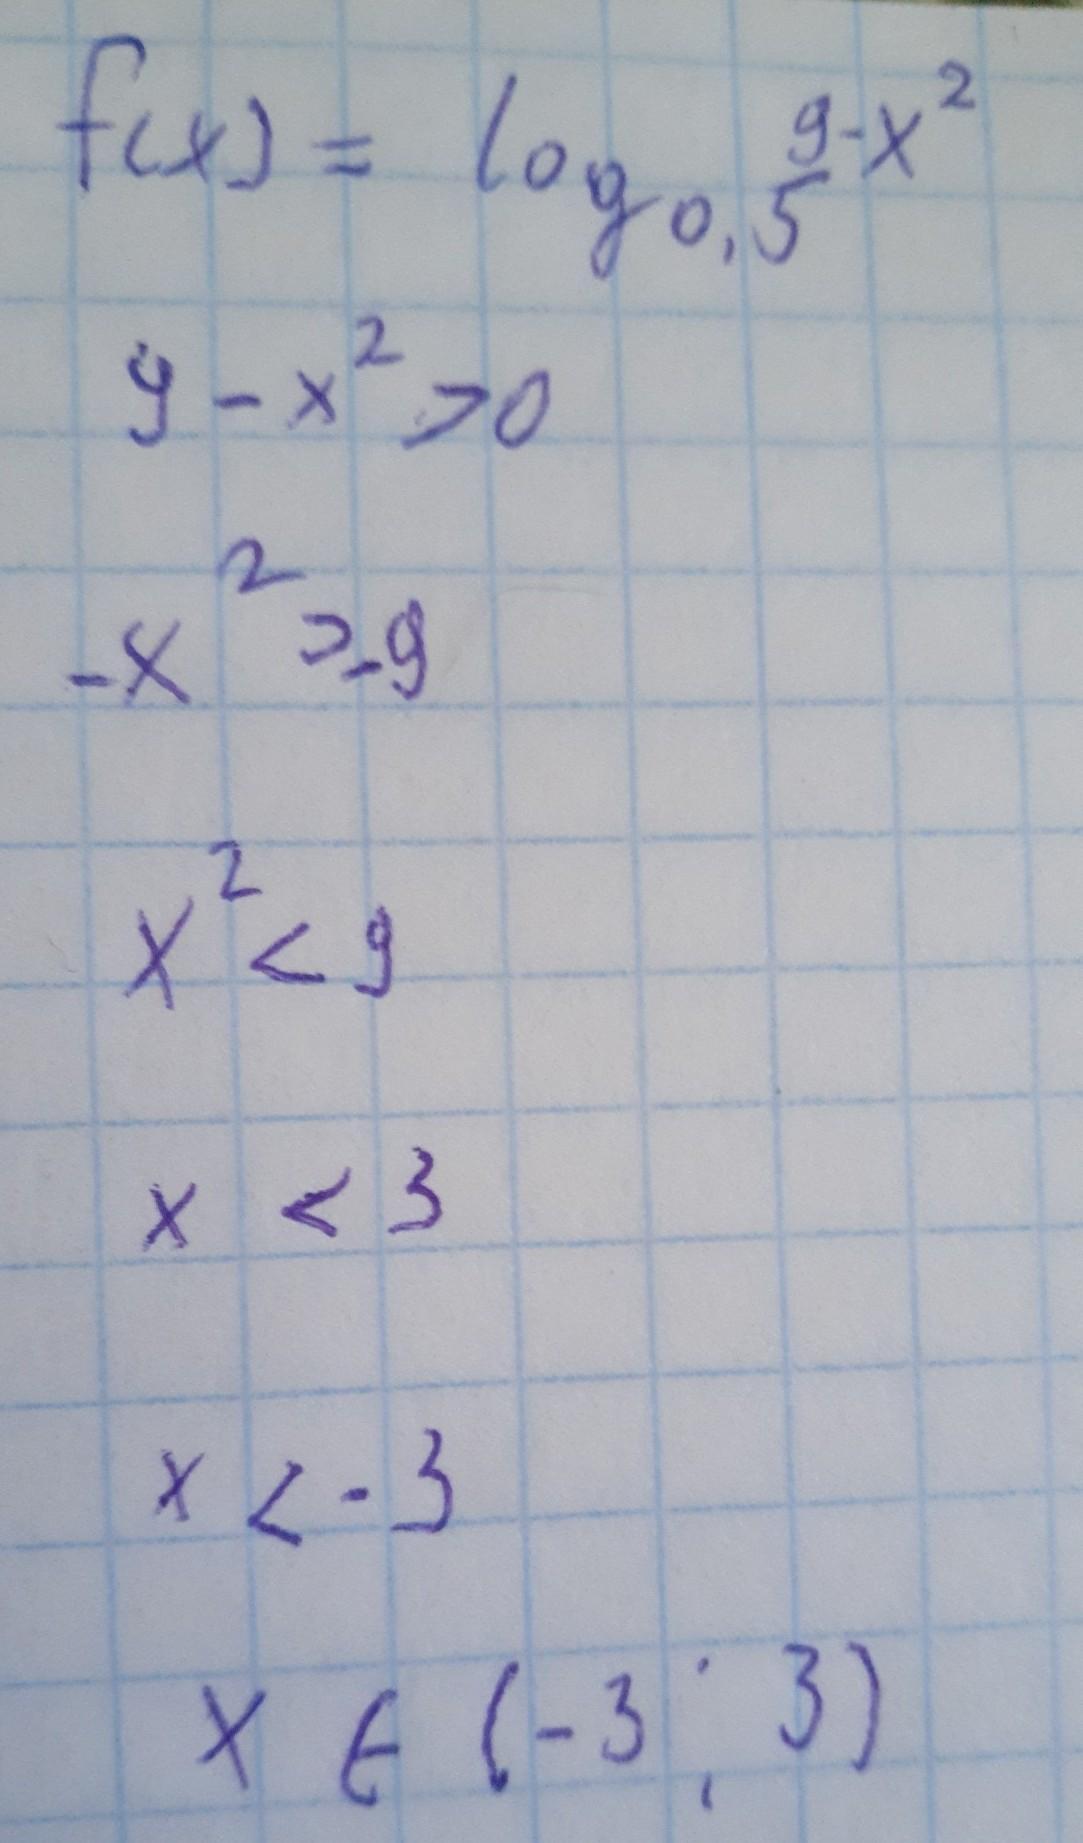 f(x) = log₀,₅ 9-x²
9 - x² > 0
-x² > -9
x² < 9
x < 3
x < -3
x ∈ (-3 ; 3)